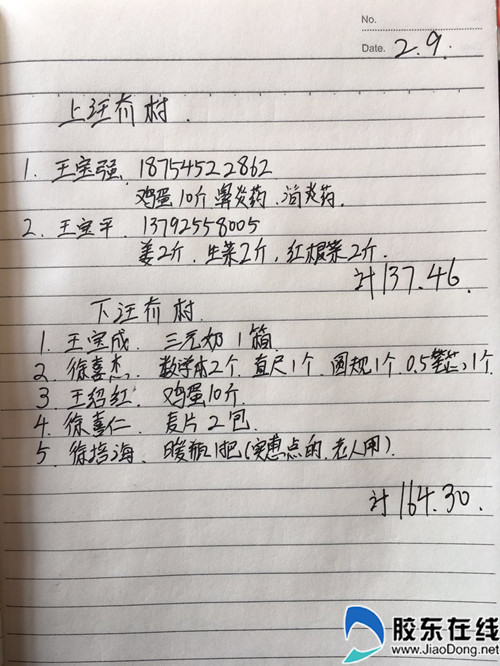 No.
Date. 2.9.
上汪介村.
1. 王宝强. 18754522862
鸡蛋10斤 鼻炎药. 消炎药.
2. 王宝平. 13792558005
姜2斤. 生菜2斤, 红根菜2斤.
计137.46.
下汪介村.
1. 王宝成. 三元奶 1箱
2. 徐喜杰. 数学本2个. 直尺1个. 圆规1个. 0.5笔芯1个
3. 王绍红. 鸡蛋10斤.
4. 徐喜仁. 麦片2包
5. 徐培海. 暖瓶1把(实惠点的.老人用).
计164.30.
胶东在线
www.JiaoDong.net